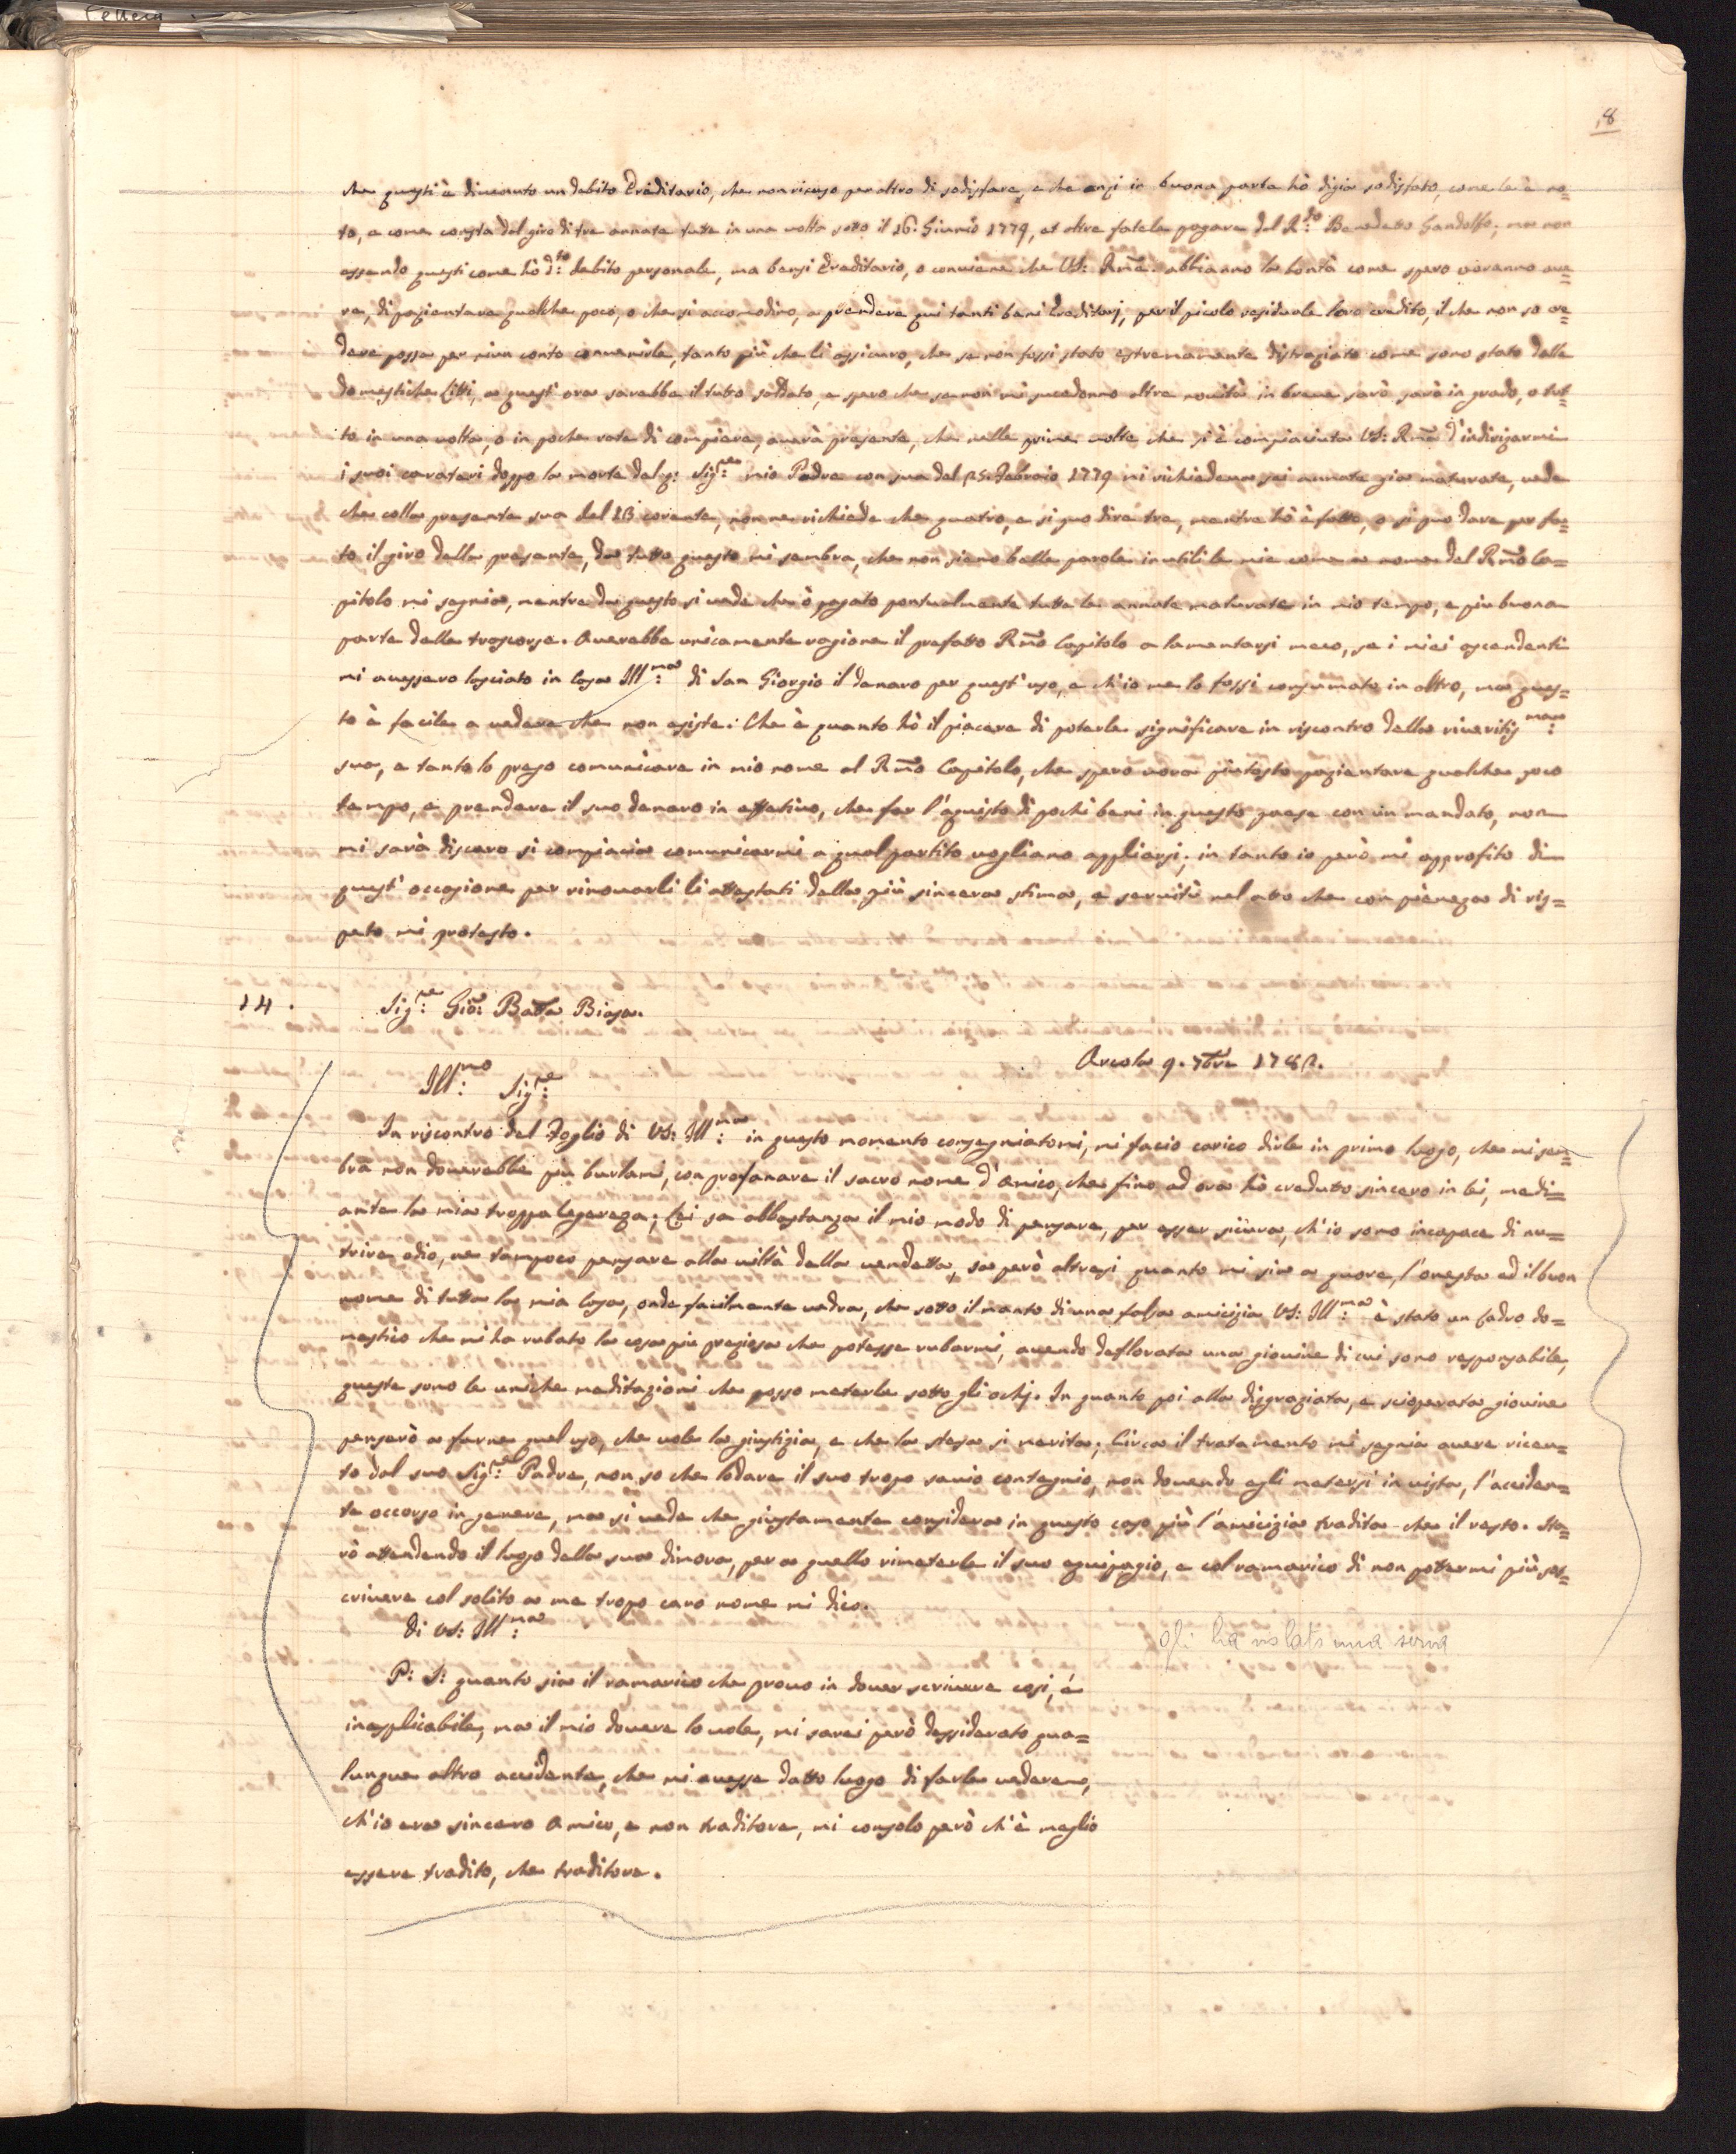 8
che questi è divenuto un debito Ereditario, che non ricuso per altro di sodisfare, e che anzi in buona parte hò digia sodisfato, come le è no=
to, e come consta dal giro di tre annate tutte in una volta sotto il 16. Giunio 1779, et altre fatele pagare dal R:do Benedetto Gandolfo; ma non
essendo questi come hò d:to debito personale, ma bensi Ereditario, o conviene che VS: Rm̃e. abbianno la bontà come spero voranno ave=
re, di pazientare qualche poco, o che si accomodino, a prendere qui tanti beni Ereditarj, per il picolo residuale loro credito, il che non so cre=
dere possa per niun conto convenirle, tanto più che li assicuro, che se non fossi stato estremamente distraziato come sono stato dalle
domestiche Litti, a quest' ora sarebbe il tutto saldato, e spero che se non mi sucedonno altre novità in breve sarò sarò in grado, o tut=
to in una volta, o in poche rate di compiere, averà presente, che nelle prime volte che si è compiaciuta VS: Rm̃a d'indirizarmi
i suoi carateri doppo la morte del q: Sig:re mio Padre con sua del 25. Febraio 1779 mi richiedeva sei annate gia maturate, vede
che colla presente sua del 28 corente, non ne richiede che quatro, e si puo dire tre, mentre hò è fatto, o si puo dare per fa=
to il giro della presente, da tutto questo mi sembra, che non sieno belle parole inutili le mie come a nome del Rm̃o Ca=
pitolo mi segnia, mentre da questo si vede che ò pagato pontualmente tutte le annate maturate in mio tempo, e piu buona
parte delle trascorse. Averebbe unicamente ragione il prefatto Rm̃o Capitolo a lamentarsi meco, se i miei ascendenti
mi avessero lasciato in Casa Ill:ma di San Giorgio il denaro per quest' uso, e ch'io me lo fossi consumato in altro, ma ques=
to è facile a vedere che non esiste: Che è quanto hò il piacere di poterle significare in riscontro della riveritis:ma
sua, e tanto lo prego comunicare in mio nome al Rm̃o Capitolo, che spero vora piutosto pazientare qualche poco
tempo, e prendere il suo denaro in effettivo, che far l'aquisto di pochi beni in questo paese con un mandato, non
mi sarà discaro si compiacia comunicarmi a qual partito vogliano appliarsi; in tanto io però mi approfito di
quest' occasione per rinovarli li attestati della più sincera stima, e servitù nel atto che con pieneza di ris=
peto mi protesto.
14.
Sig:re Gio: Batta Biasa.
Arcola 9. 7bre 1782.
Ill:mo Sig:re
In riscontro del Foglio di VS: Ill:ma in questo momento consegniatomi, mi facio carico dirle in primo luogo, che mi sem=
bra non doverebbe piu burlarmi, con profanare il sacro nome d'Amico, che fino ad ora hò creduto sincero in lei, medi=
ante la mia troppa legereza; Lei sa abbastanza il mio modo di pensare, per esser sicura, ch'io sono incapace di nu=
trire odio, ne tampoco pensare alla viltà della vendetta, sa però altresi quanto mi sia a quore, l'onestà ed il buon
nome di tutta la mia Casa, onde facilmente vedra, che sotto il manto di una falsa amicizia VS: Ill:ma è stato un Ladro do=
mestico che mi ha rubato la cosa piu preziosa che potesse rubarmi, avendo deflorata una giovine di cui sono responsabile,
queste sono le uniche meditazioni che posso meterle sotto gli ochj. In quanto poi alla disgraziata, e scioperata giovine
penserò a farne quel uso, che vole la giustizia, e che la stessa si merita; Circa il tratamento mi segnia avere ricev=
to dal suo Sig:re Padre, non so che lodare il suo tropo savio contegnio, non dovendo egli metersi in vista, l'acciden=
te occorso in genere, ma si vede che giustamente considera in questo caso più l'amicizia tradita che il resto. Sta=
rò attendendo il luogo della sua dimora, per a quello rimeterle il suo equipagio, e col ramarico di non pottermi più sos=
crivere col solito a me tropo caro nome mi dico.
Di VS: Ill:ma
gli ha violato una serva
P: S: quanto sia il ramarico che provo in dover scrivere cosi, è
inesplicabile, ma il mio dovere lo vole, mi sarei però dessiderato qua=
lunque altro accidente, che mi avesse datto luogo di farle vedere,
ch'io era sincero Amico, e non traditore, mi consolo però ch'è meglio
essere tradito, che traditore.